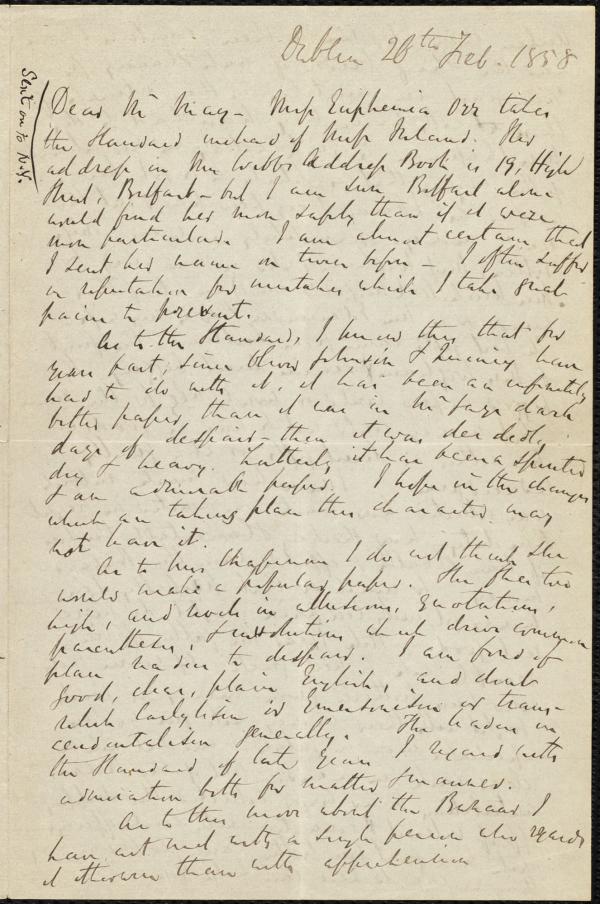 Dublin 20th Feb. 1858
Sent on to N.Y.
Dear Mr May - Miss Euphemia Orr takes
the Standard instead of Miss Ireland. Her
address in Mr Webb's Address Book is 19, High
Street, Belfast - but I am sure Belfast alone
would find her more safely than if it were
more particular. I am almost certain that
I sent her name on twice before - I often suffer
in reputation for mistakes which I take great
pains to prevent.
As to the Standard, I know this that for
years past, since Oliver Johnson & Quincy have
had to do with it, it has been an infinitely
better paper than it was in Mr Gay's dark
days of despair - then it was decidedly
dry & heavy. Latterly it has been a spirited
& an admirable paper. I hope in the changes
which are taking place this character may
not leave it.
As to Mrs Chapman I do not think she
would make a popular paper. She flies too
high, and works in allusions, quotations,
parenthesis, & which drive common
place readers to despair. I am fond of
good, clear, plain English, and don't
relish Carlylism or Emersonism or trans-
cendentalism generally. The leaders in
the Standard of late years I regard with
admiration both for matter & manner.
As to this move about the Bazaar I
have not met with a single person who regards
it otherwise than with apprehension